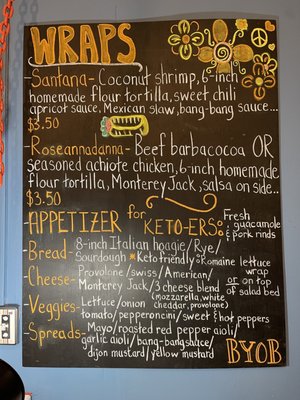 WRAPS
-Santana- Coconut shrimp, 6-inch
homemade flour tortilla, sweet chili
apricot sauce, Mexican slaw, bang-bang sauce...
$3.50
-Roseannadanna- Beef barbacocoa OR
seasoned achiote chicken, 6-inch homemade
flour tortilla, Monterey Jack, salsa on side..
$3.50
-APPETIZER for KETO-ERS: Fresh guacamole & pork rinds
-Bread- 8-inch Italian hoagie/Rye/
Sourdough *Keto friendly: Romaine lettuce wrap or on top of salad bed
-Cheese- Provolone/swiss/American/
Monterey Jack/3 cheese blend
(mozzarella, white cheddar, provolone)
-Veggies- Lettuce/onion
tomato/pepperoncini/sweet & hot peppers
-Spreads- Mayo/roasted red pepper aioli/
garlic aioli/bang-bang sauce/
dijon mustard/yellow mustard
BYOB